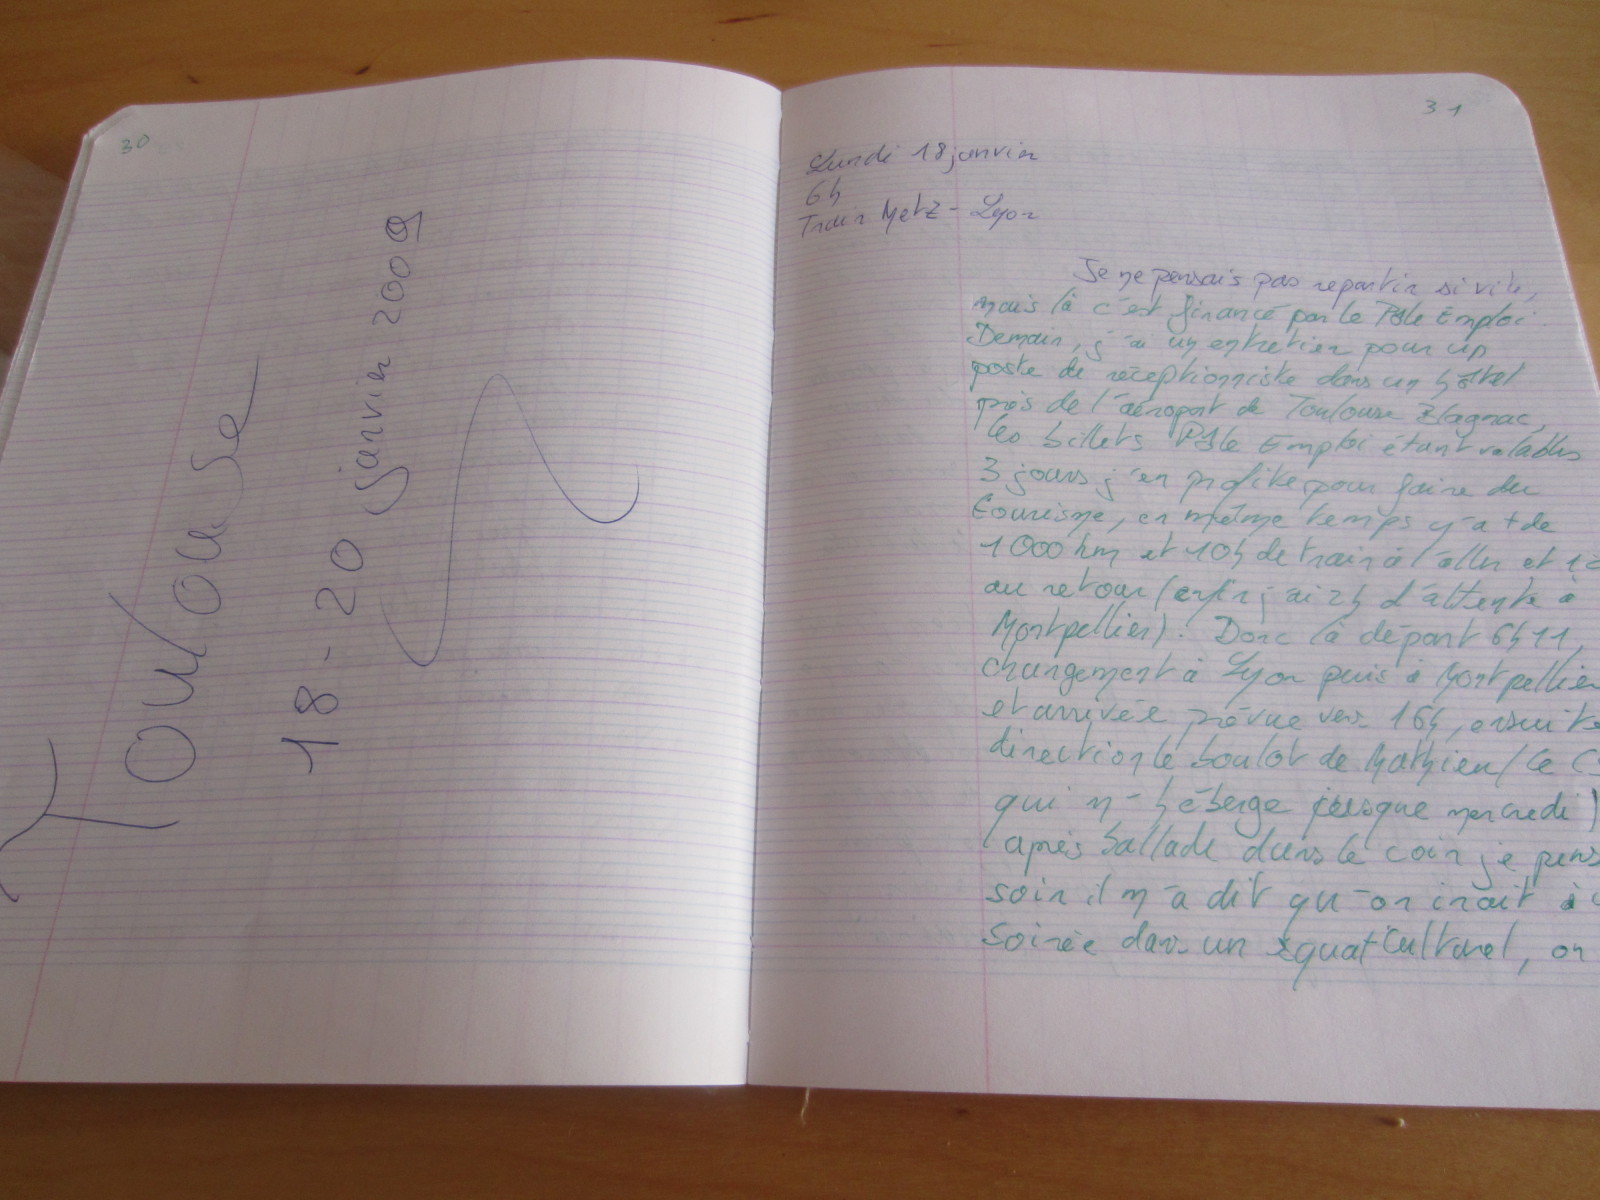 30
Toulouse
18-20 janvier 2009
31
Lundi 18 janvier
6h
Train Metz - Lyon
Je ne pensais pas repartir si vite,
mais là c'est financé par le Pôle Emploi.
Demain, j'ai un entretien pour un
poste de réceptionniste dans un hôtel
près de l'aéroport de Toulouse Blagnac,
les billets Pôle Emploi étant valables
3 jours j'en profite pour faire du
tourisme, en même temps y'a + de
1000 km et 10h de train à l'aller et 12
au retour (enfin j'ai 2h d'attente à
Montpellier). Donc là départ 6h11,
changement à Lyon puis à Montpellier
et arrivée prévue vers 16h, ensuite
direction le boulot de Mathieu (le CS
qui m'héberge jusque mercredi)
après ballade dans le coin je pens
soir il m'a dit qu'on irait à
soirée dans un squat culturel, on